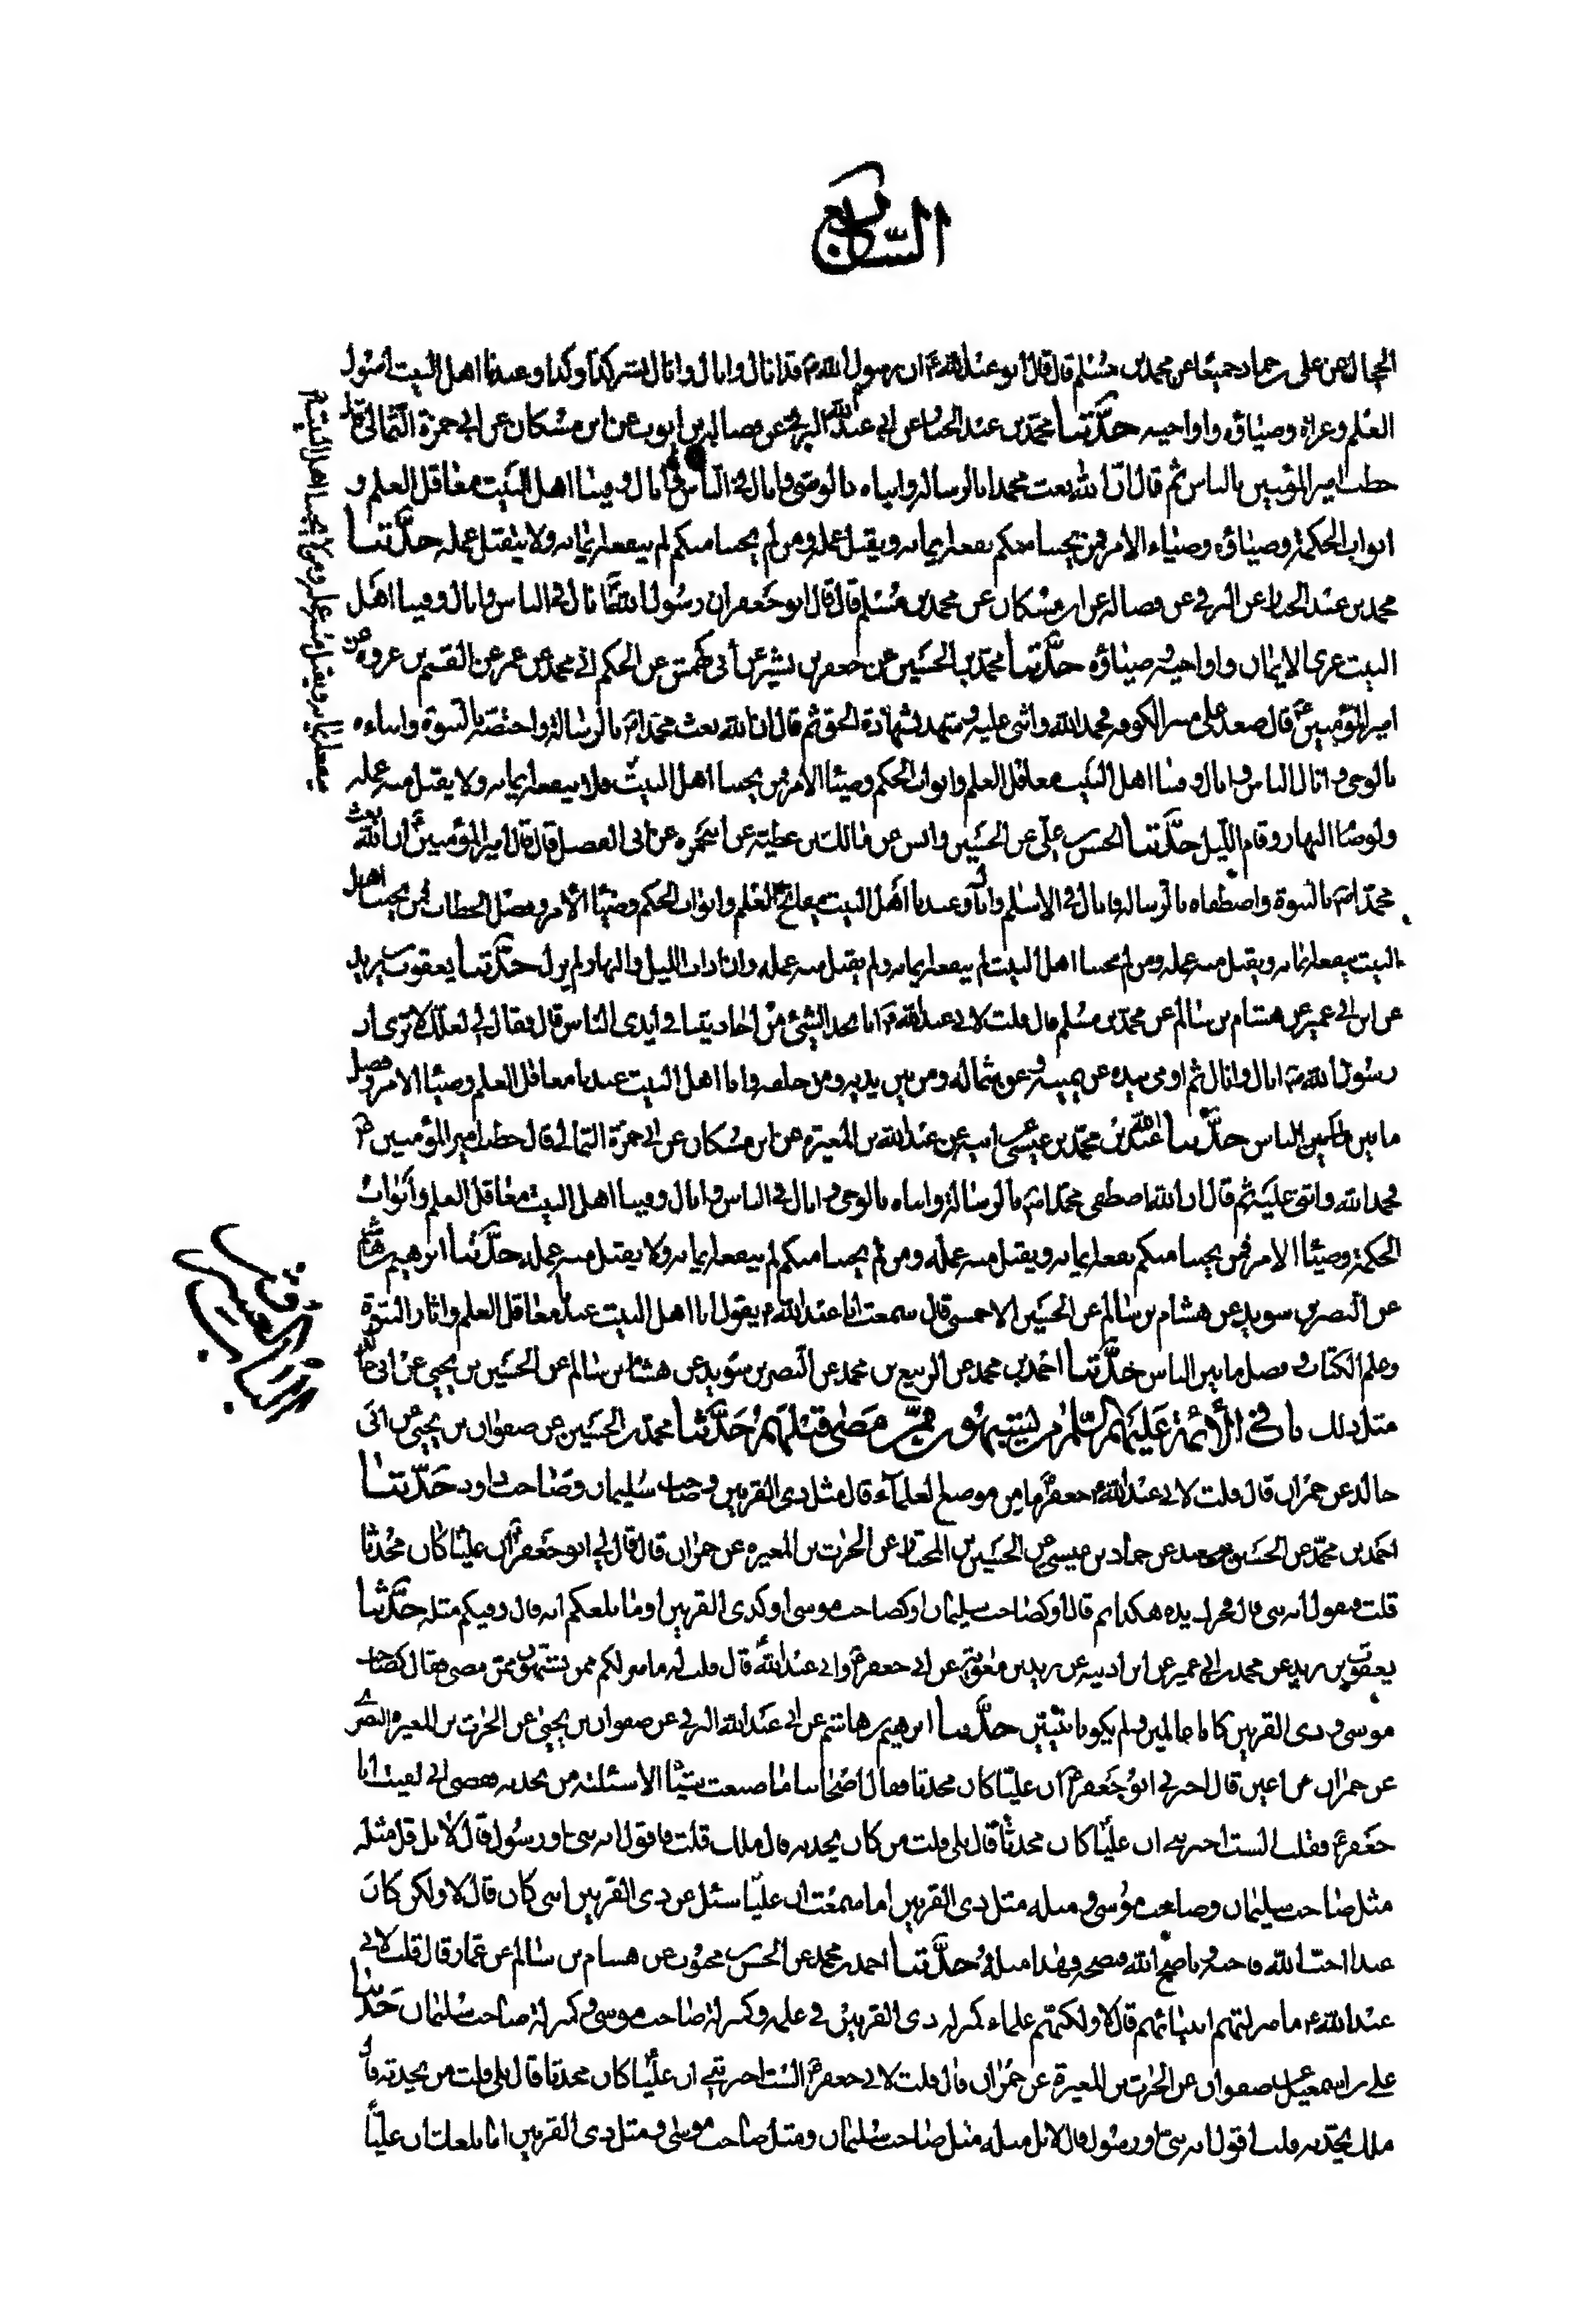 السابع
الحجال عن علي بن حماد جميعا عن محمد بن مسلم قال قال ابو عبد الله ع ان رسول الله ص قد انال وانال وانال يشير كذا وكذا وعندنا اهل البيت اصول
العلم وعراه وضياؤه واواخيه حدثنا محمد بن عبد الجبار عن ابي عبد الله البرقي عن فضالة بن ايوب عن ابن مسكان عن ابي حمزة الثمالي قال
خطب امير المؤمنين بالناس ثم قال ان الله بعث محمدا بالرسالة وانباه بالوحي وانال في الناس وانال وفينا اهل البيت معاقل العلم و
ابواب الحكمة وضياؤه وضياء الامر فمن يحبنا منكم نفعه ايمانه ويقبل عمله ومن لم يحبنا منكم لم ينفعه ايمانه ولا يتقبل عمله حدثنا
محمد بن عبد الجبار عن البرقي عن فضالة عن ابن مسكان عن محمد بن مسلم قال قال ابو جعفر ان رسول الله ص انال في الناس وانال وفينا اهل
البيت عرى الايمان واواخيه وضياؤه حدثنا محمد بن الحسين عن جعفر بن بشير عن أبي كهمش عن الحكم ابي محمد عن عمر عن القسم بن عروة عن
امير المؤمنين ع قال صعد على منبر الكوفة فحمد الله واثنى عليه وشهد بشهادة الحق ثم قال ان الله بعث محمدا ص بالرسالة واختصه بالنبوة وانباءه
بالوحي وانال الناس وانال وفينا اهل البيت معاقل العلم وابواب الحكم وضياء الامر فمن يحبنا اهل البيت فلا ينفعه ايمانه ولا يقبل منه عمله
ولو صام النهار وقام الليل حدثنا الحسن بن علي عن الحسين وانس عن مالك بن عطية عن ابي حمزة عن ابي الفضل قال قال امير المؤمنين ع ان الله بعث
محمدا ص بالنبوة واصطفاه بالرسالة وانال في الاسلام وانال وعندنا اهل البيت مفاتح العلم وابواب الحكم وضياء الامر وفصل الخطاب فمن يحبنا اهل
البيت ينفعه ايمانه ويقبل منه عمله ومن لم يحبنا اهل البيت لم ينفعه ايمانه ولم يقبل منه عمله وان ادأب الليل والنهار لم يزل حدثنا يعقوب بن يزيد
عن ابن ابي عمير عن هشام بن سالم عن محمد بن مسلم قال قلت لابي عبد الله ع انا نجد الشيء من أحاديثنا في أيدي الناس قال فقال لي لعلك لا ترى ان
رسول الله ص انال وانال ثم اومى بيده عن يمينه وعن شماله ومن بين يديه ومن خلفه وانا اهل البيت عندنا معاقل العلم وضياء الامر وفصل
ما بين الناس حدثنا عبد الله بن محمد بن عيسى عن ابيه عن عبد الله بن المغيرة عن ابن مسكان عن ابي حمزة الثمالي قال خطب امير المؤمنين ع
فحمد الله واثنى عليه ثم قال ان الله اصطفى محمدا ص بالرسالة وانباه بالوحي وانال في الناس وانال وفينا اهل البيت معاقل العلم وأبواب
الحكمة وضياء الامر فمن يحبنا منكم نفعه ايمانه ويقبل منه عمله ومن لم يحبنا منكم لم ينفعه ايمانه ولا يقبل منه عمله حدثنا ابرهيم بن هاشم
عن النضر بن سويد عن هشام بن سالم عن الحسين الاحمسي قال سمعت ابا عبد الله ع يقول انا اهل البيت عندنا معاقل العلم واثار النبوة
وعلم الكتاب وفصل ما بين الناس حدثنا احمد بن محمد عن الربيع بن محمد عن النضر بن سويد عن هشام بن سالم عن الحسين بن يحيى عن ابي خالد
مثل ذلك باب في الأئمة عليهم السلام من يشبهون ممن مضى قبلهم حدثنا محمد بن الحسين عن صفوان بن يحيى عن ابي
خالد عن حمران قال قلت لابي عبد الله ع جعفر ع ما من موضع العلماء قال مثل ذي القرنين وصاحب سليمان وصاحب داود حدثنا
احمد بن محمد عن الحسين بن سعيد عن حماد بن عيسى عن الحسين بن المختار عن الحرث بن المغيرة عن حمران قال قال لي ابو جعفر ع ان عليا كان محدثا
قلت فيقول انه نبي قال فحرك يده هكذا ثم قال او كصاحب سليمان او كصاحب موسى او كذي القرنين او ما بلغكم انه قال وفيكم مثله حدثنا
يعقوب بن يزيد عن محمد بن ابي عمير عن ابن اذينة عن بريد بن معوية عن ابي جعفر ع وابي عبد الله ع قال قلت له ما منزلتكم ممن تشبهون ممن مضى فقال كصاحب
موسى وذي القرنين كانا عالمين ولم يكونا نبيين حدثنا ابرهيم بن هاشم عن ابي عبد الله البرقي عن صفوان بن يحيى عن الحرث بن المغيرة النضري
عن حمران بن اعين قال اخبرني ابو جعفر ع ان عليا كان محدثا فقال اصحابنا ما صنعت شيئا الا سئلته من يحدثه فقضى اني لقيت ابا
جعفر ع فقلت الست اخبرتني ان عليا كان محدثا قال بلى قلت من كان يحدثه قال ملك قلت فاقول انه نبي او رسول قال لا بل قل مثله
مثل صاحب سليمان وصاحب موسى ومثله مثل ذي القرنين اما سمعت ان عليا سئل عن ذي القرنين انبي كان قال لا ولكن كان
عبدا احب الله فاحبه وناصح الله فنصحه فهذا مثله حدثنا احمد بن محمد عن الحسن بن محبوب عن هشام بن سالم عن عمار قال قلت لابي
عبد الله ع ما منزلتهم انبياء هم قال لا ولكنهم علماء كمنزلة ذي القرنين في علمه وكمنزلة صاحب موسى وكمنزلة صاحب سليمان حدثنا
علي بن اسمعيل عن صفوان عن الحرث بن المغيرة عن حمران قال قلت لابي جعفر ع الست اخبرتني ان عليا كان محدثا قال بلى قلت من يحدثه قال
ملك يحدثه قلت اقول انه نبي او رسول قال لا بل مثله مثل صاحب سليمان ومثل صاحب موسى ومثل ذي القرنين اما بلغك ان عليا
ينفعه ايمانه ويقبل منه عمله ومن لا يحبنا اهل البيت